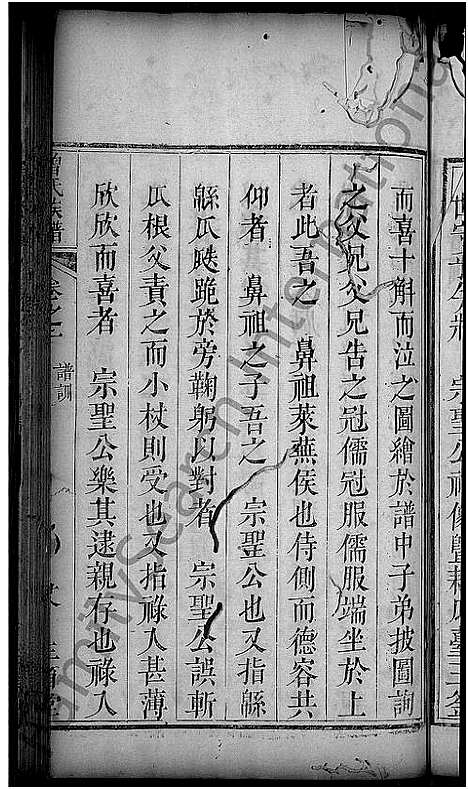 而喜十斛而泣之圖繪於譜中子弟披圖詢
之父兄父兄告之冠儒冠服儒服端坐於上
者此吾之　鼻祖萊蕪侯也侍側而德容共
仰者　鼻祖之子吾之　宗聖公也又指緜
緜瓜瓞跪於旁鞠躬以對者　宗聖公誤斬
瓜根父責之而小杖則受也又指祿入甚薄
欣欣而喜者　宗聖公樂其逮親存也祿入
曾氏族譜　卷之二　譜訓
FamilySearch International